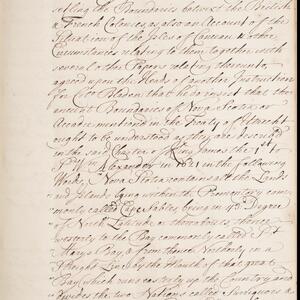 settling the Boundaries between the British
& French Colonies, as also an Account of the
Situation of the Isles of Canceau & other
Circumstances relating to them together with
several other Papers relating thereunto,
agreed upon the Heads of another Instruction
for Col.º Bladen that he do insist that the
ment Boundaries of Nova Scotia or
Accadie mentioned in the Treaty of Utrecht
ought to be understood as they are describ'd
in the said Charter of King James the 1st to
Sr. Wm. Alexander in 1621 in the following
Words, Nova Scotia contains all the Lands
and Islands lying within the Promontory com-
monly called Cape Sables, lying in 43d. Degree
of North Latitude or thereabouts thence
westerly to the Bay commonly called St.
Marys Bay, & from thence Northerly in a
Streight Line by the Mouth of that great
Bay which runs easterly up the Country and
divides the two Nations called Suriquois &